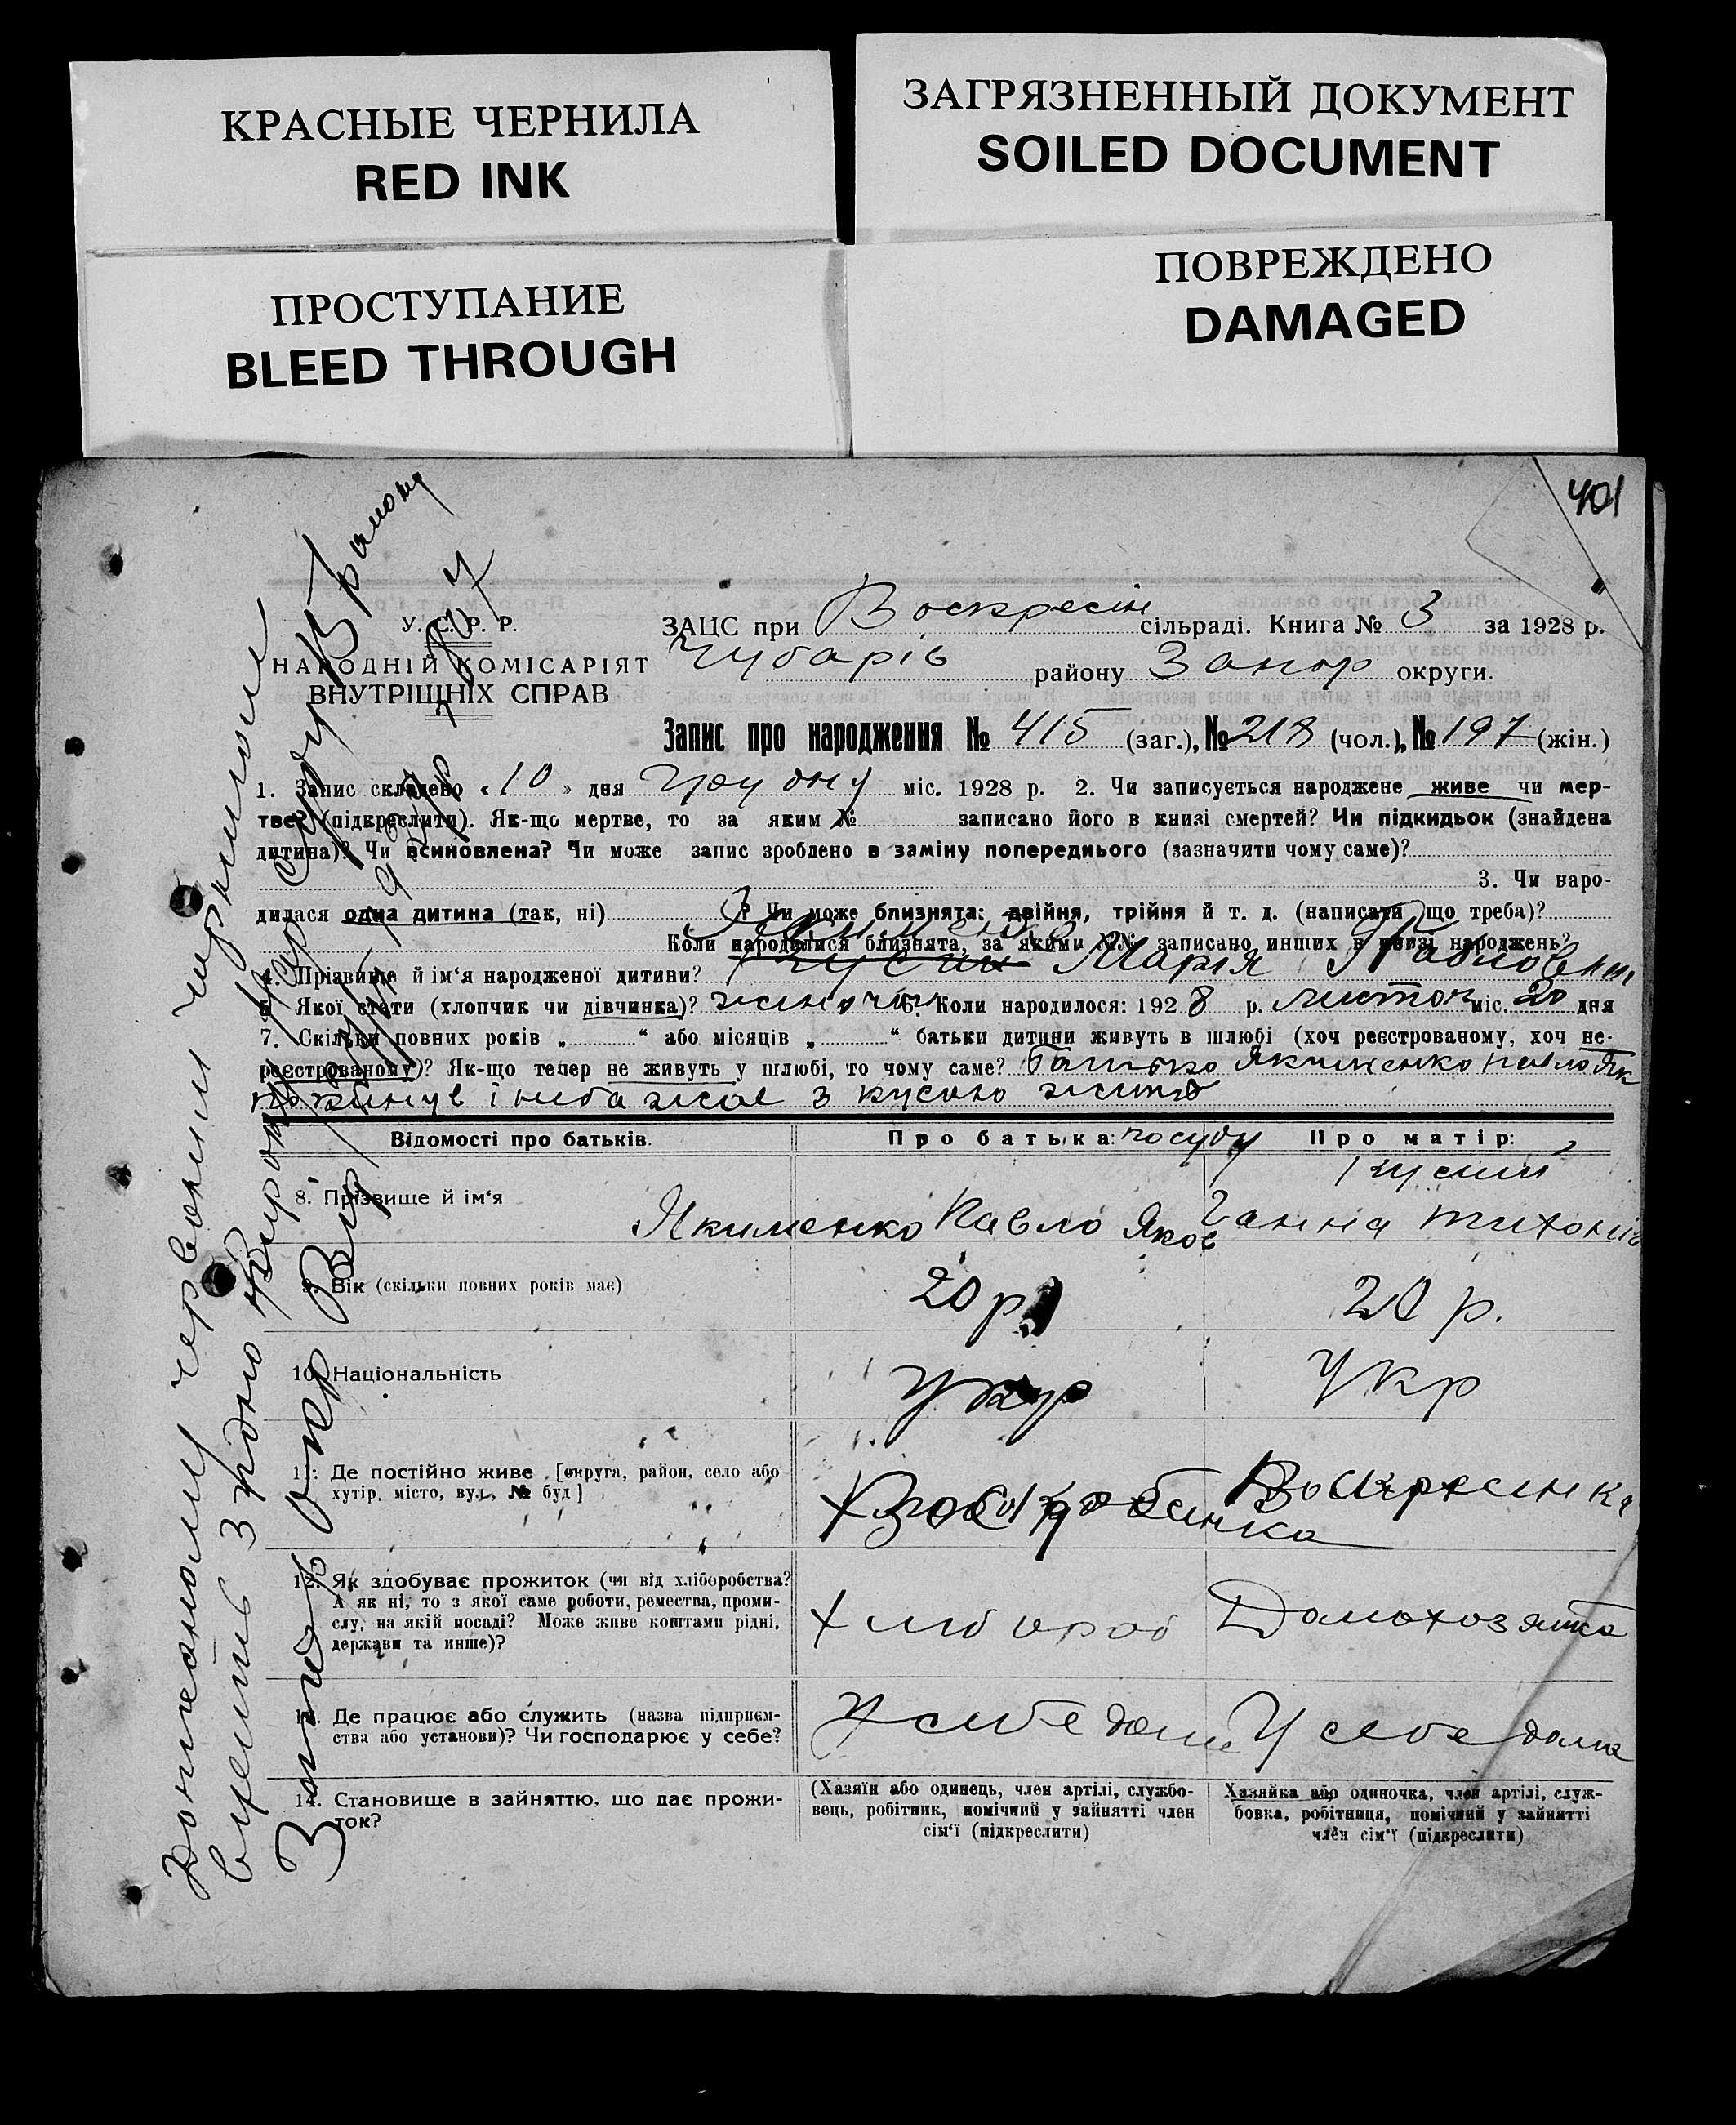 КРАСНЫЕ ЧЕРНИЛА
RED INK
ЗАГРЯЗНЕННЫЙ ДОКУМЕНТ
SOILED DOCUMENT
ПРОСТУПАНИЕ
BLEED THROUGH
ПОВРЕЖДЕНО
DAMAGED
401
У. С. Р. Р.
НАРОДНІЙ КОМІСАРІЯТ
ВНУТРІШНІХ СПРАВ
ЗАЦС при Воскресін сільраді. Книга № 3 за 1928 р.
Чубарів району Запор округи.
Запис про народження № 415 (заг.), № 218 (чол.), № 197 (жін.)
1. Запис складено « 10 » дня грудня міс. 1928 р. 2. Чи записується народжене живе чи мер-
тве? (підкреслити). Як-що мертве, то за яким № записано його в книзі смертей? Чи підкидьок (знайдена
дитина)? Чи всиновлена? Чи може запис зроблено в заміну попереднього (зазначити чому саме)?
3. Чи наро-
дилася одна дитина (так, ні) ? Чи може близнята: двійня, трійня й т. д. (написати що треба)?
Коли народилися близнята, за якими №№ записано инших в книзі народжень?
Якименко
4. Прізвище й ім‘я народженої дитини? Кусий Марія Павловна
5. Якої стати (хлопчик чи дівчинка)? жиноча 6. Коли народилося: 1928 р. листоп міс. 20 дня
7. Скільки повних років „ “ або місяців „ “ батьки дитини живуть в шлюбі (хоч реєстрованому, хоч не-
реєстрованому)? Як-що тепер не живуть у шлюбі, то чому саме? Батько Якименко Павло Як
покинув і небажає з кусою жить
Відомості про батьків.
Про батька: по суду
Про матір:
8. Прізвище й ім‘я
Якименко Павло Яков
Кусий
Ганна Тихонів
9. Вік (скільки повних років має)
20 р.
20 р.
10. Національність
Укр
Укр
11. Де постійно живе [округа, район, село або
хутір, місто, вул., № буд]
Воскресенка
Воскресинка
12. Як здобуває прожиток (чи від хліборобства?
А як ні, то з якої саме роботи, ремества, проми-
слу, на якій посаді? Може живе коштами рідні,
держави та инше)?
Хлібороб
Домохозяйка
13. Де працює або служить (назва підприєм-
ства або установи)? Чи господарює у себе?
У себе дома
У себе дома
14. Становище в зайняттю, що дає прожи-
ток?
(Хазяїн або одинець, член артілі, службо-
вець, робітник, помічний у зайнятті член
сім‘ї (підкреслити)
Хазяйка або одиночка, член артілі, служ-
бовка, робітниця, помічний у зайнятті
член сім‘ї (підкреслити)
червоними чернилами
вірить згідно